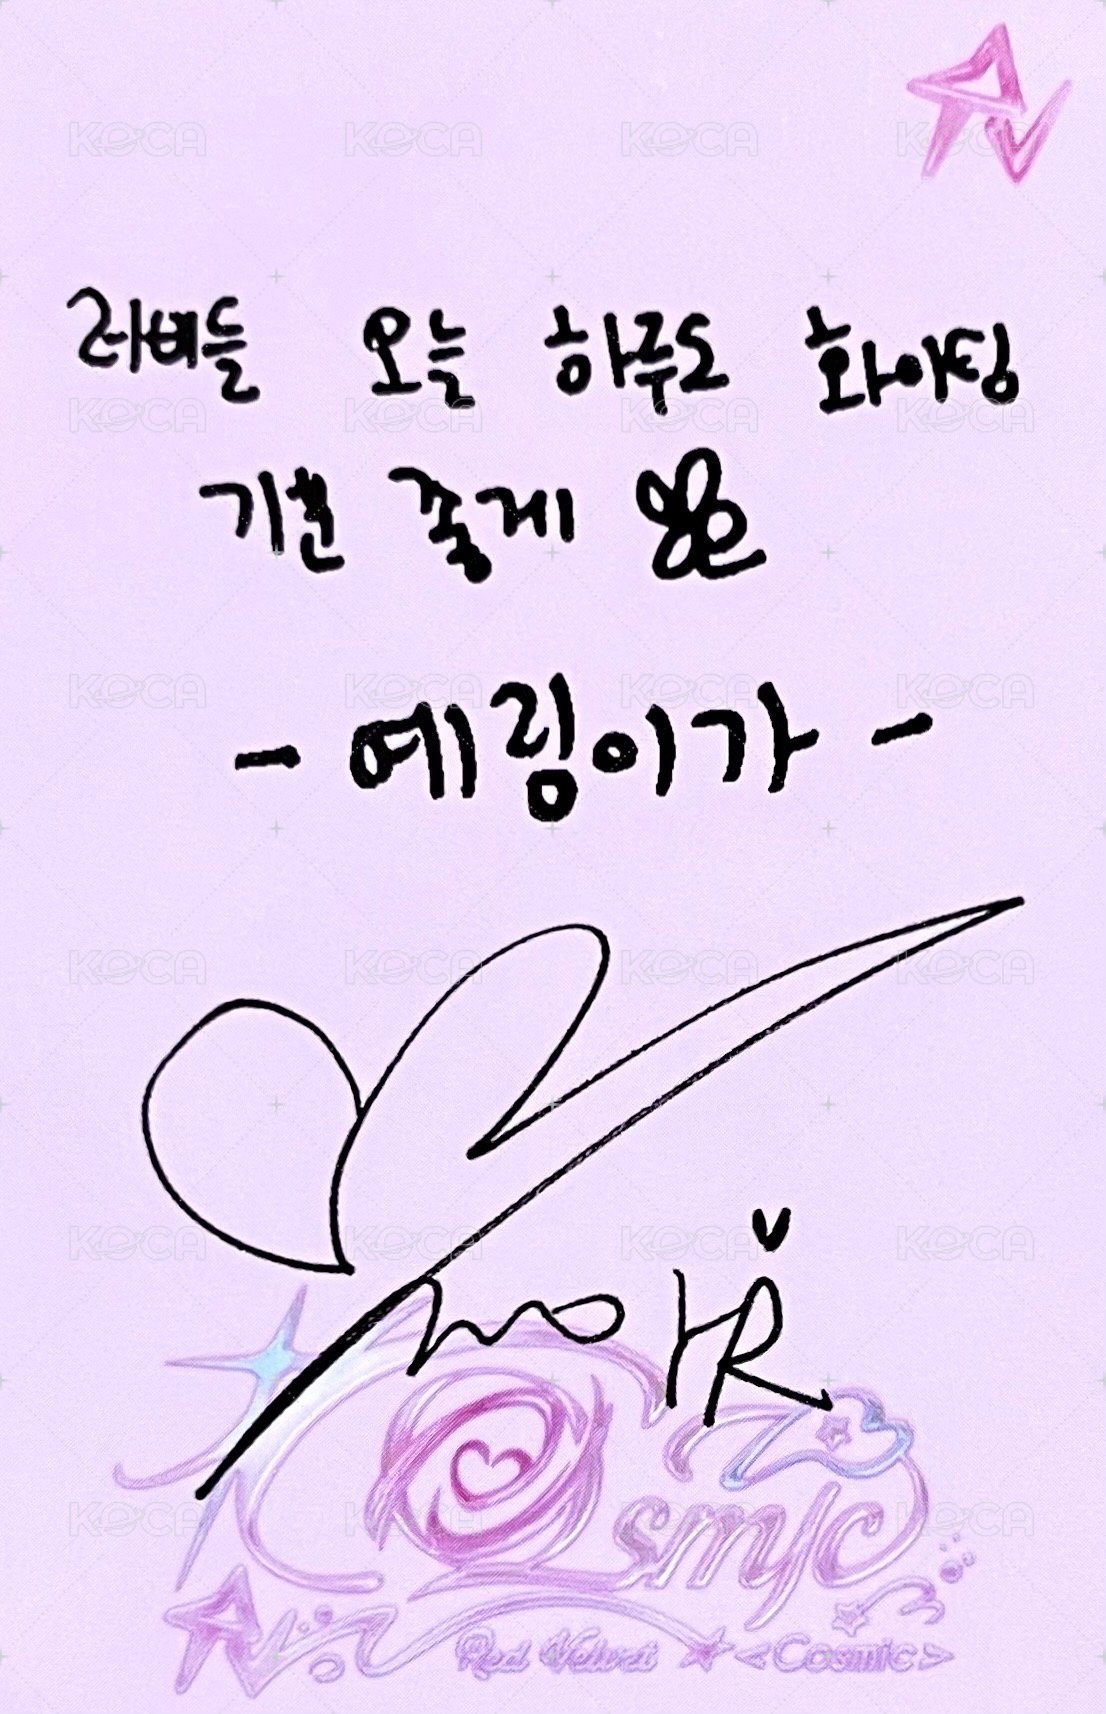 러비들 오늘 하루도 화이팅
기분 좋게
- 예링이가 -
Cosmic
Red Velvet <Cosmic>